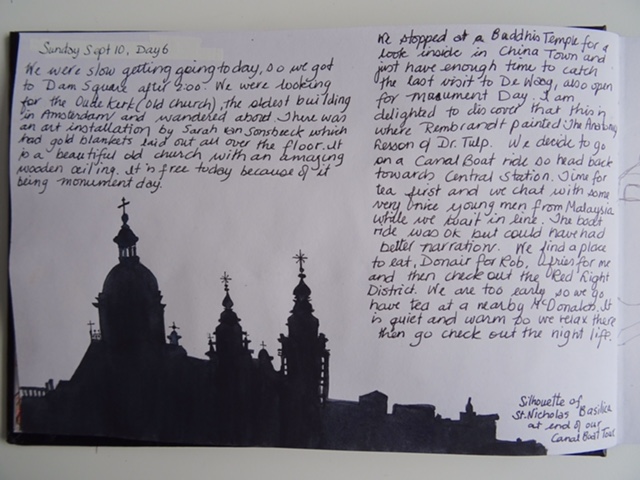 Sunday Sept 10, Day 6
We were slow getting going today, so we got
to Dam Square after 2:00. We were looking
for the Oude Kerk (old church), the oldest building
in Amsterdam and wandered about. There was
an art installation by Sarah van Sonsbeeck which
had gold blankets laid out all over the floor. It
is a beautiful old church with an amazing
wooden ceiling. It is free today because of it
being monument day.
We stopped at a Buddhis Temple for a
look inside in China Town and
just have enough time to catch
the last visit to De Waag, also open
for monument Day. I am
delighted to discover that this is
where Rembrandt painted The Anatomy
Lesson of Dr. Tulp. We decide to go
on a Canal Boat ride so head back
towards Central Station. Time for
tea first and we chat with some
very nice young men from Malaysia
while we wait in line. The boat
ride was ok but could have had
better narration. We find a place
to eat, Donair for Rob, fries for me
and then check out the Red Light
District. We are too early so we go
have tea at a nearby McDonalds. It
is quiet and warm so we relax there
then go check out the night life.
Silhouette of
St. Nicholas Basilica
at end of our
Canal Boat Tour